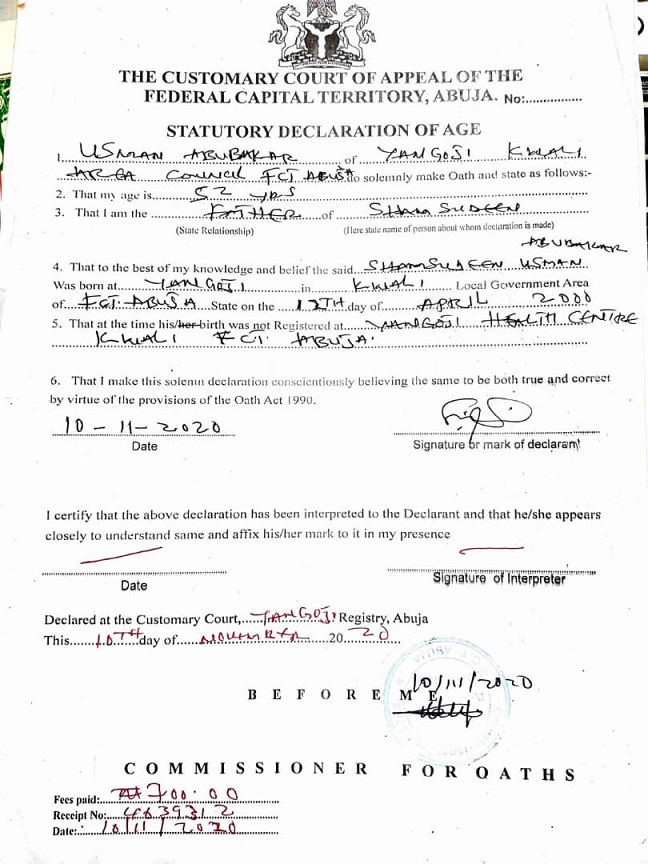 THE CUSTOMARY COURT OF APPEAL OF THE
FEDERAL CAPITAL TERRITORY, ABUJA. No:..............
STATUTORY DECLARATION OF AGE
1. USMAN ABUBAKAR of YANGOJI KWALI
AREA COUNCIL FCT ABUJA do solemnly make Oath and state as follows:-
2. That my age is 52 yrs
3. That I am the FATHER of SHAMSUDEEN
(State Relationship) (Here state name of person about whom declaration is made)
ABUBAKAR
4. That to the best of my knowledge and belief the said SHAMSUDEEN USMAN
Was born at YANGOJI in KWALI Local Government Area
of FCT. ABUJA State on the 12TH day of APRIL 2000
5. That at the time his/her birth was not Registered at YANGOJI HEALTH CENTRE
KWALI FCT. ABUJA.
6. That I make this solemn declaration conscientiously believing the same to be both true and correct
by virtue of the provisions of the Oath Act 1990.
10-11-2020
Date Signature or mark of declarant
I certify that the above declaration has been interpreted to the Declarant and that he/she appears
closely to understand same and affix his/her mark to it in my presence
Date Signature of Interpreter
Declared at the Customary Court, YANGOJI Registry, Abuja
This 10TH day of NOVEMBER 20 20
10/11/2020
BEFORE ME
COMMISSIONER FOR OATHS
Fees paid: ₦700.00
Receipt No: 4639312
Date: 10/11/2020